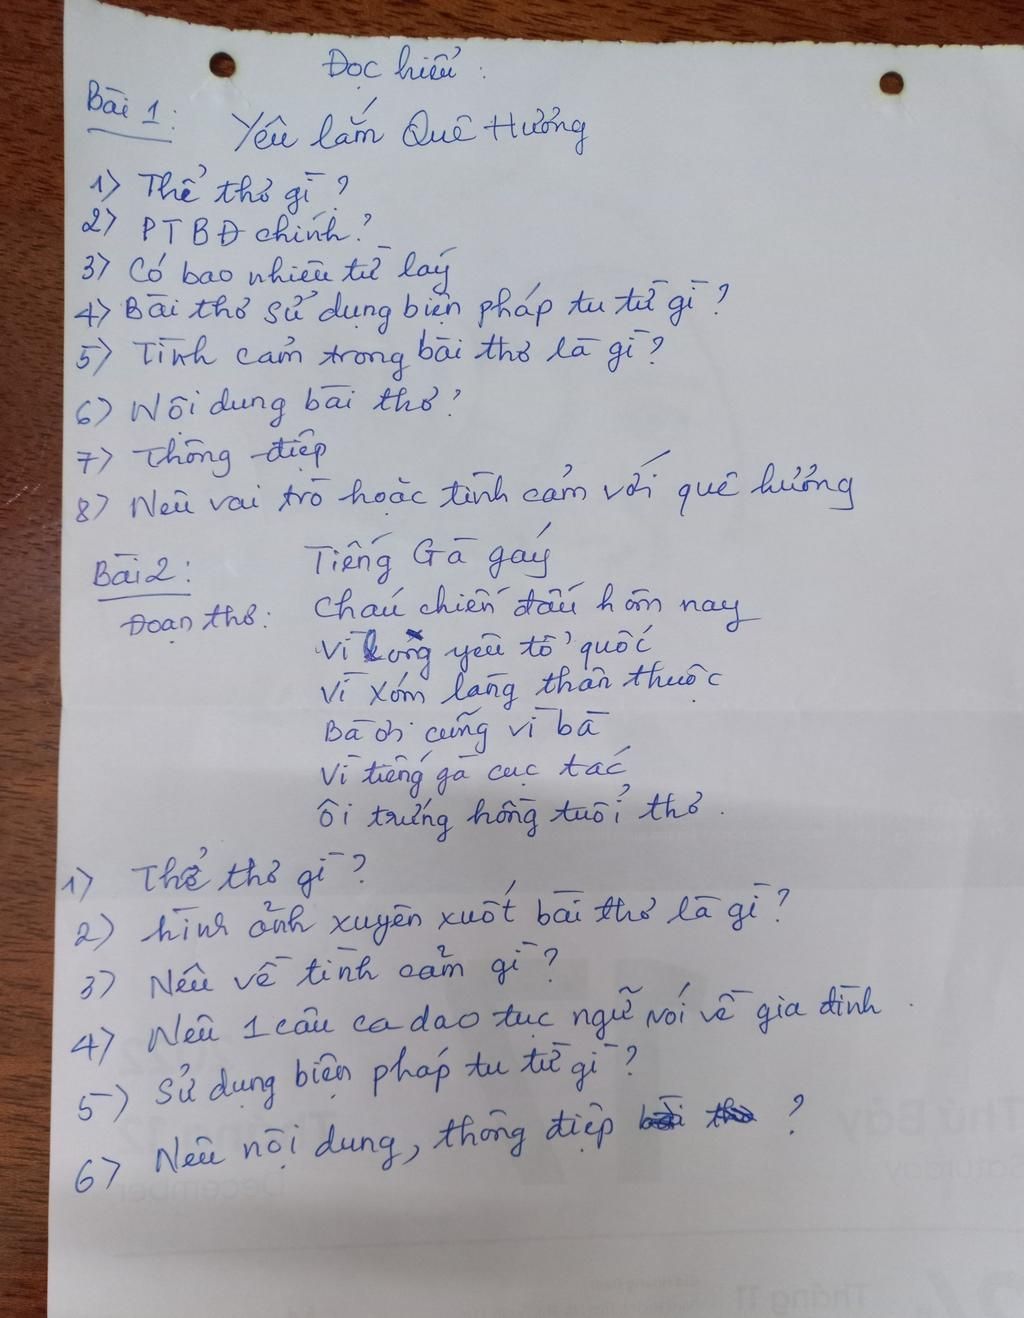 Đọc hiểu:
Bài 1:
Yêu lắm Quê Hương
1) Thể thơ gì?
2) PTBĐ chính?
3) Có bao nhiêu từ láy
4) Bài thơ sử dụng biện pháp tu từ gì?
5) Tình cảm trong bài thơ là gì?
6) Nội dung bài thơ?
7) Thông điệp
8) Nêu vai trò hoặc tình cảm với quê hương
Bài 2:
Tiếng Gà gáy
Đoạn thơ: Cháu chiến đấu hôm nay
Vì lòng yêu tổ quốc
Vì xóm làng thân thuộc
Bà ơi cũng vì bà
Vì tiếng gà cục tác
Ôi trứng hồng tuổi thơ.
1) Thể thơ gì?
2) hình ảnh xuyên xuốt bài thơ là gì?
3) Nêu về tình cảm gì?
4) Nêu 1 câu ca dao tục ngữ nói về gia đình.
5) Sử dụng biện pháp tu từ gì?
6) Nêu nội dung, thông điệp ?
2022
Thứ Bảy
Saturday
17
Tháng 12
December
Tháng 11
24